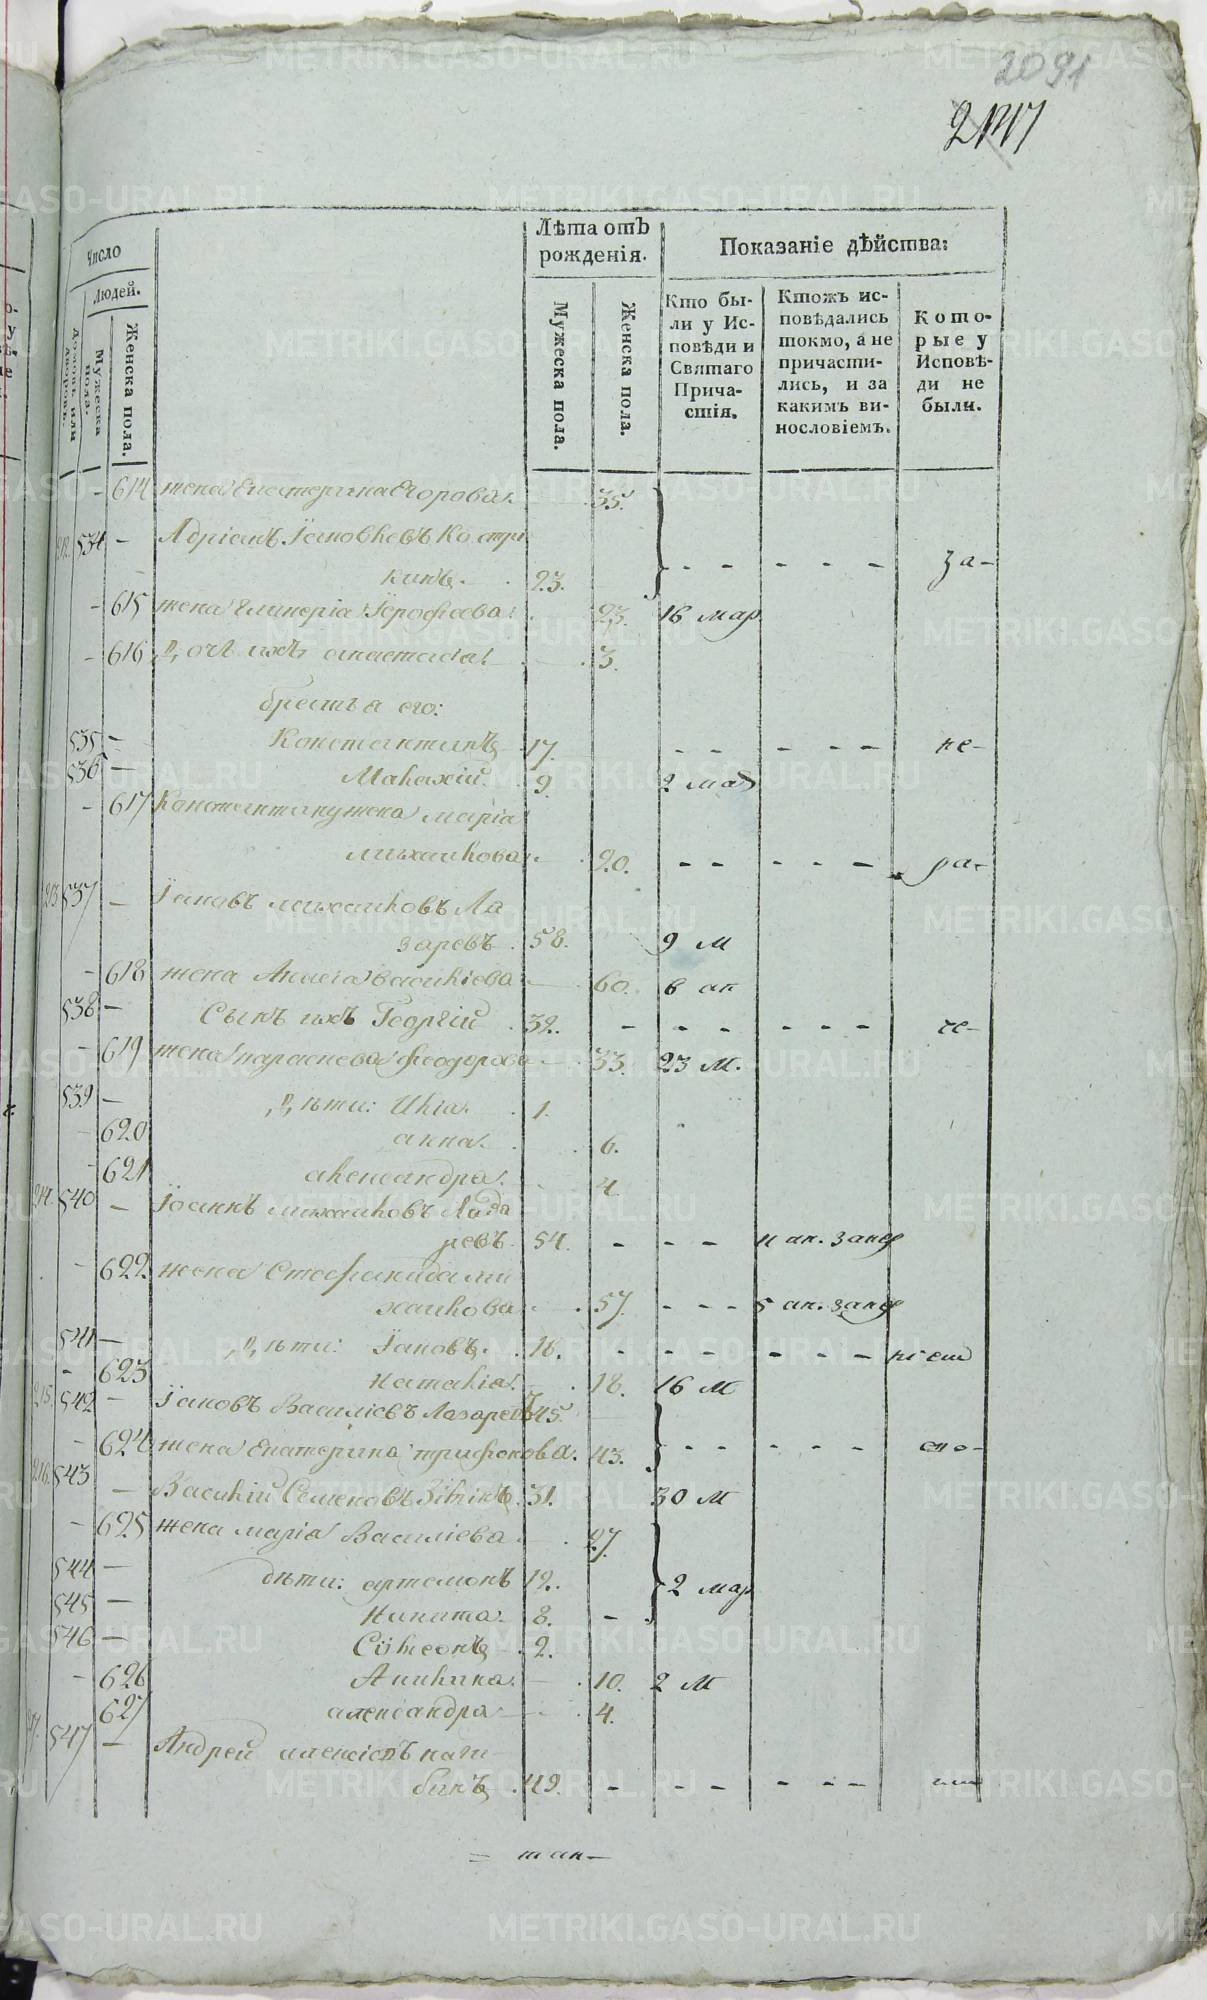 2091
Число
Людей.
Домовъ или дворовъ.
Мужеска пола.
Женска пола.
Лѣта отъ рожденія.
Мужеска пола.
Женска пола.
Показаніе дѣйства:
Кто бы-
ли у Ис-
повѣди и
Святаго
Прича-
стія.
Ктожъ ис-
повѣдались
токмо, а не
причасти-
лись, и за
какимъ ви-
нословіемъ.
Кото-
рые у
Исповѣ-
ди не
были.
- 614 жена Екатерина Егорова. 35.
212. 534 - Адріанъ Іаковлевъ Костри
кинъ. 23. - - - - - за-
- 615 жена Гликерія Іерофеева. 23. 16 мар.
- 616 дочь ихъ анастасія. 3.
братья его:
535 - Константинъ 17. - - - - - не-
536 - Макарій. 9. 2 мар
- 617 Константину жена марія
михаилова. 20. - - - - - ра-
213 537 - Іаковъ михаиловъ Ла
заревъ. 58. 9 м
- 618 жена Анисія василіева 60. 6 ап
538 - Сынъ ихъ Георгій 32. - - - - - - че-
- 619 жена параскева феодорова 33. 23 М.
539 - дѣти: Илія. 1.
- 620 анна. 6.
- 621 александра. 4.
214. 540 - Іоаннъ михаиловъ Лаза
ревъ. 54. - - -
622 жена Стефанида ми
хаилова 57. - - -
541 - дѣти: Іаковъ. 16. - - - - - -
- 623 наталія. 18. 16 М
215. 542 - Іаковъ Василіевъ Лазаревъ 45.
- 624 жена Екатерина трифонова. 43. - - - - -
216. 543 - Василій Семеновъ 31. 30 М
- 625 жена марія Василіева 27.
544 - дѣти: артемонъ 12. 2 мар
545 - Никита. 8. -
546 - Сѵмеонъ 2.
- 626 Акилина. 10. 2 М
627 александра 4.
217. 547 - Андрей алексіевъ наги
бинъ. 49. - - - - - -